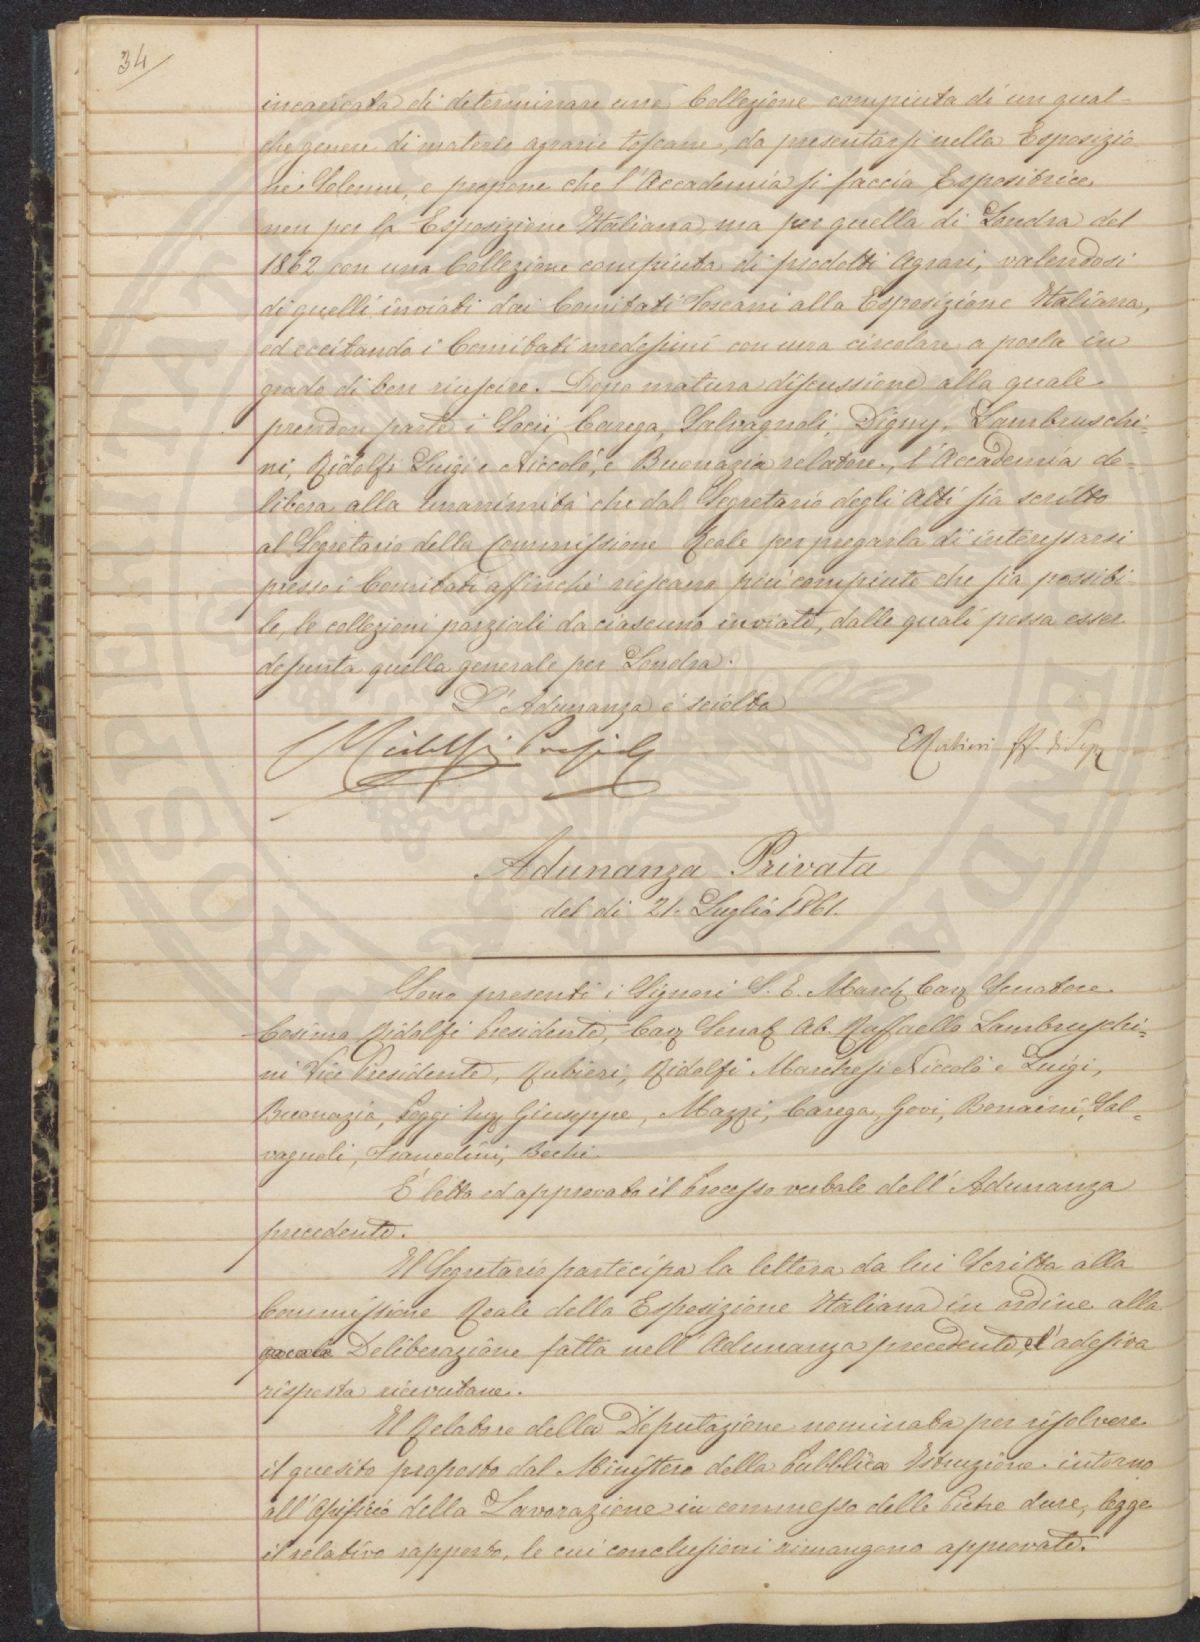 34
incaricata di determinare una Collezione compiuta di un qual-
che genere di materie agrarie toscane, da presentarsi nella Esposizio
ne Solenne, e propone che l'Accademia si faccia Espositrice
non per la Esposizione Italiana, ma per quella di Londra del
1862 con una Collezione compiuta di prodotti Agrari, valendosi
di quelli inviati dai Comitati Toscani alla Esposizione Italiana,
ed eccitando i Comitati medesimi con una circolare a porla in
grado di ben riuscire. Dopo matura discussione alla quale
prendon parte i Socii Carega, Salvagnoli, Digny, Lambruschi-
ni, Ridolfi Luigi e Niccolò, e Buonazia relatore, l'Accademia de-
libera alla unanimità che dal Segretario degli Atti sia scritto
al Segretario della Commissione Reale per pregarla di interessarsi
presso i Comitati affinché riescano più compiute che sia possibi
le, le collezioni parziali da ciascuno inviate, dalle quali possa esser
desunta quella generale per Londra.
L'Adunanza è sciolta
Ridolfi Presid
E Rubieri ff. di Segr
Adunanza Privata
del di 21. Luglio 1861.
Sono presenti i Signori S. E. March Cav Senatore
Cosimo Ridolfi Presidente, Cav Senat Ab. Raffaello Lambruschi-
ni Vice Presidente, Rubieri, Ridolfi Marchesi Niccolò e Luigi,
Buonazia, Poggi Ing Giuseppe, Mazzi, Carega, Govi, Bonaini, Sal-
vagnoli, Francolini, Bechi.
È letto ed approvato il Processo verbale dell'Adunanza
precedente.
Il Segretario partecipa la lettera da lui Scritta alla
Commissione Reale della Esposizione Italiana in ordine alla
Deliberazione fatta nell'Adunanza precedente, e l'adesiva
risposta ricevutane.
Il Relatore della Deputazione nominata per risolvere
il quesito proposto dal Ministero della Pubblica Istruzione intorno
all'Opificio della Lavorazione in commesso delle Pietre dure, legge
il relativo rapporto, le cui conclusioni rimangono approvate.